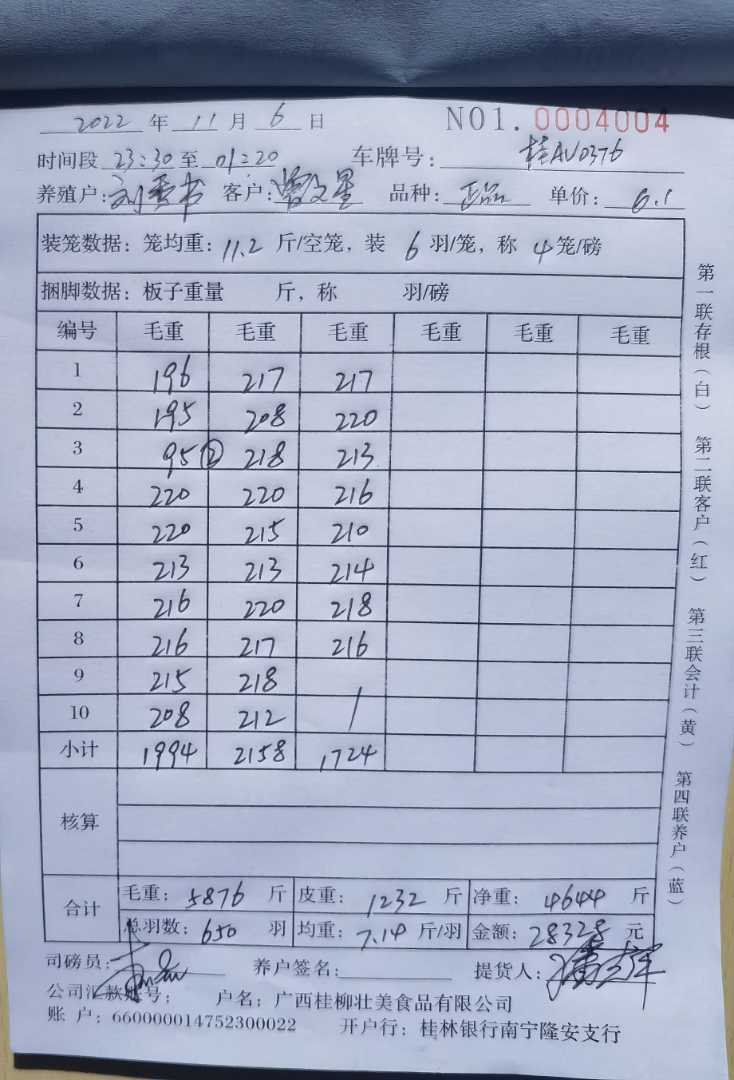 2022 年 11 月 6 日 NO1. 0004004
时间段 23:30 至 01:20 车牌号: 桂AV0376
养殖户: 刘 书 客户: 曾文星 品种: 正品 单价: 6.1
装笼数据: 笼均重: 11.2 斤/空笼, 装 6 羽/笼, 称 4 笼/磅
捆脚数据: 板子重量 斤, 称 羽/磅
编号 毛重 毛重 毛重 毛重 毛重 毛重
1 196 217 217
2 195 208 220
3 95② 218 213
4 220 220 216
5 220 215 210
6 213 213 214
7 216 220 218
8 216 217 216
9 215 218
10 208 212 /
小计 1994 2158 1724
核算
合计 毛重: 5876 斤 皮重: 1232 斤 净重: 4644 斤
总羽数: 650 羽 均重: 7.14 斤/羽 金额: 28328 元
司磅员: 养户签名: 提货人:
公司汇款账号: 户名: 广西桂柳壮美食品有限公司
账 户: 660000014752300022 开户行: 桂林银行南宁隆安支行
第一联存根(白) 第二联客户(红) 第三联会计(黄) 第四联养户(蓝)